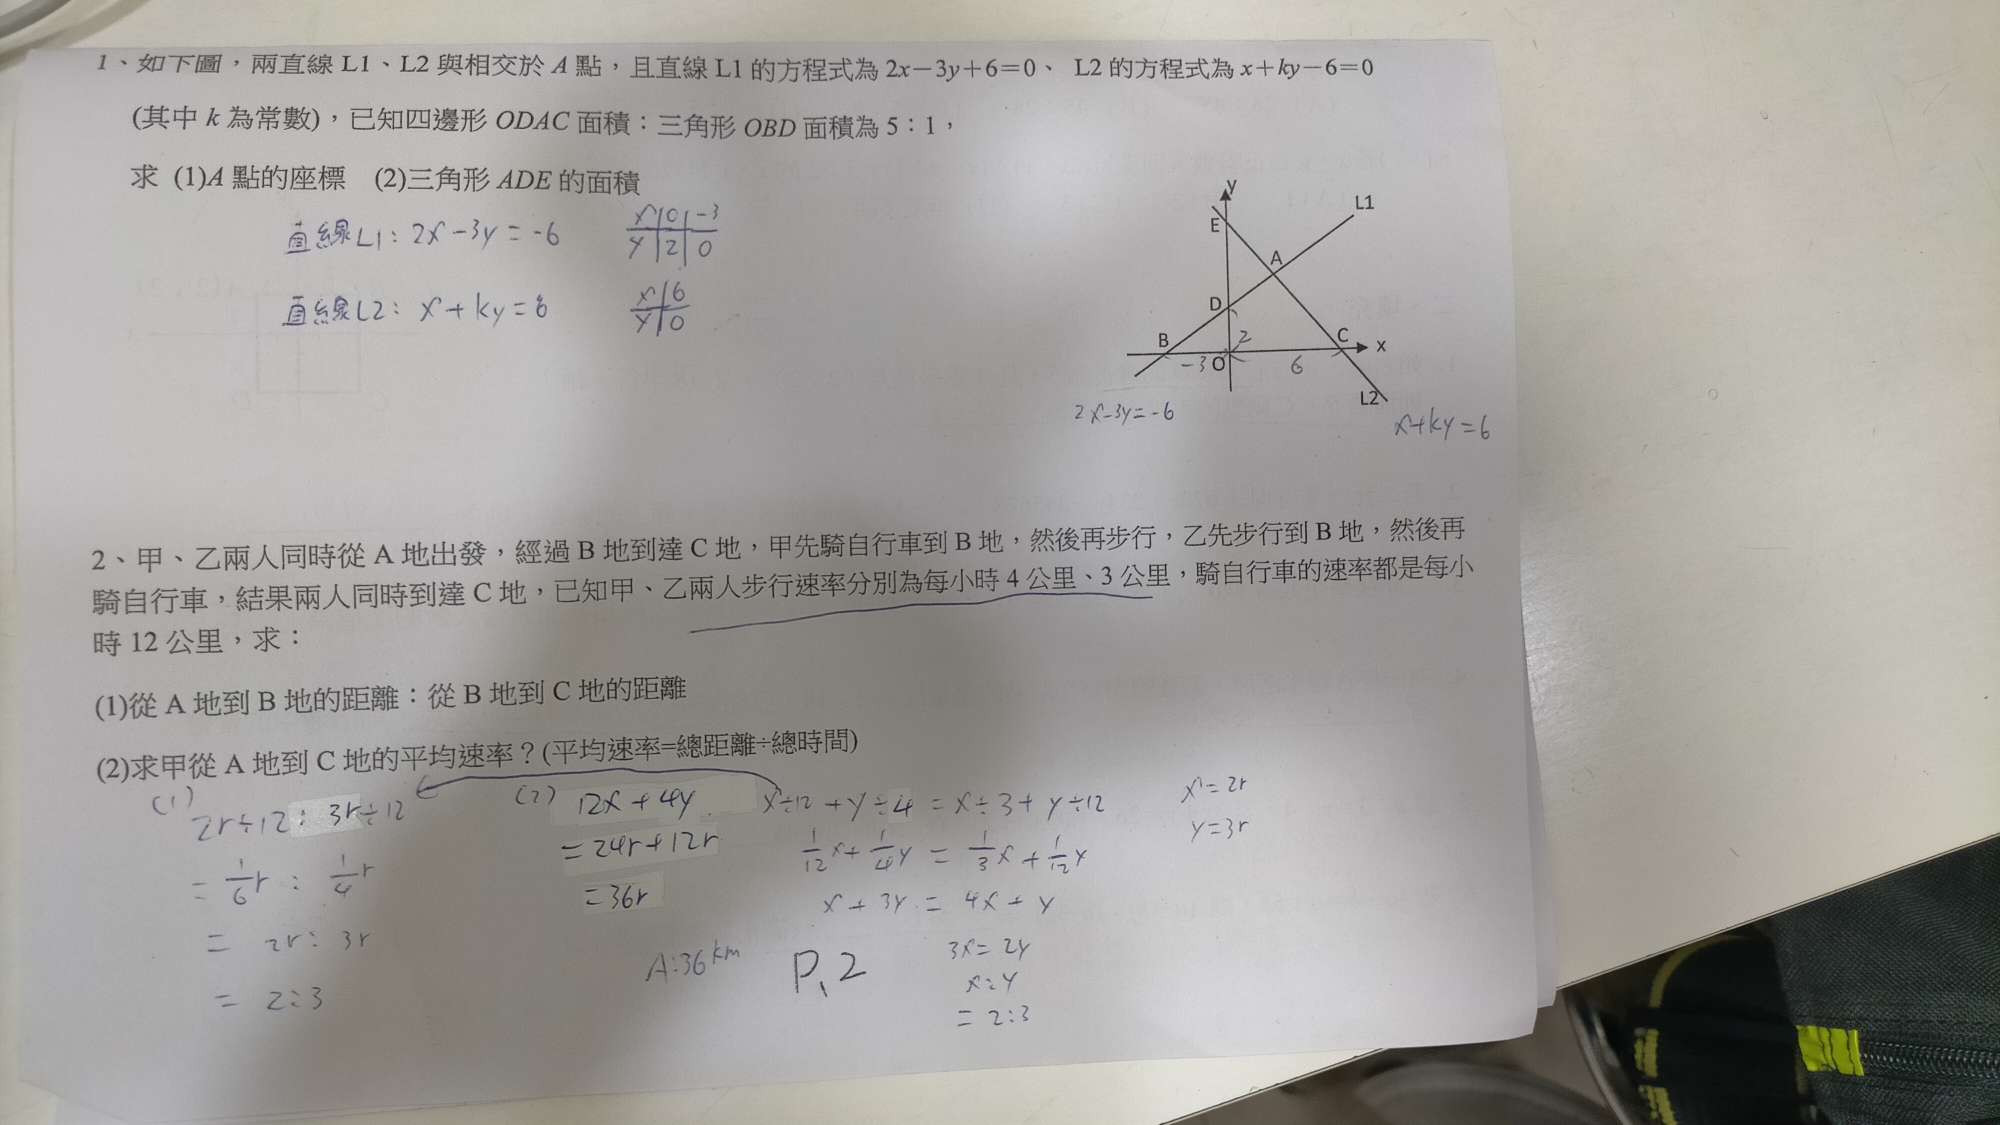 1、如下圖，兩直線 L1、L2 與相交於 A 點，且直線 L1 的方程式為 2x－3y＋6＝0、 L2 的方程式為 x＋ky－6＝0
(其中 k 為常數)，已知四邊形 ODAC 面積：三角形 OBD 面積為 5：1，
求 (1)A 點的座標 (2)三角形 ADE 的面積
直線L1: 2x-3y=-6
x 0 -3
y 2 0
直線L2: x+ky=6
x 6
y 0
y
L1
E
A
D
B
2
C
x
-3
O
6
L2
2x-3y=-6
x+ky=6
2、甲、乙兩人同時從 A 地出發，經過 B 地到達 C 地，甲先騎自行車到 B 地，然後再步行，乙先步行到 B 地，然後再
騎自行車，結果兩人同時到達 C 地，已知甲、乙兩人步行速率分別為每小時 4 公里、3 公里，騎自行車的速率都是每小
時 12 公里，求：
(1)從 A 地到 B 地的距離：從 B 地到 C 地的距離
(2)求甲從 A 地到 C 地的平均速率？(平均速率=總距離÷總時間)
(1)
2r÷12: 3r÷12
= 1/6 r : 1/4 r
= 2r: 3r
= 2:3
(2) 12x+4y
= 24r+12r
= 36r
A:36km
P、2
x÷12+y÷4 = x÷3+y÷12
1/12 x + 1/4 y = 1/3 x + 1/12 y
x+3y = 4x+y
3x=2y
x:y
= 2:3
x=2r
y=3r